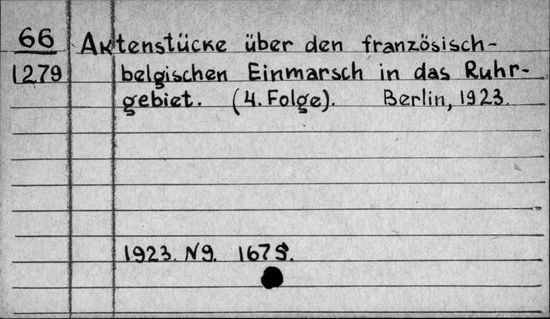 66 Aktenstücke über den französisch-
1279 belgischen Einmarsch in das Ruhr-
gebiet. (4. Folge). Berlin, 1923.
1923. N9. 1675.